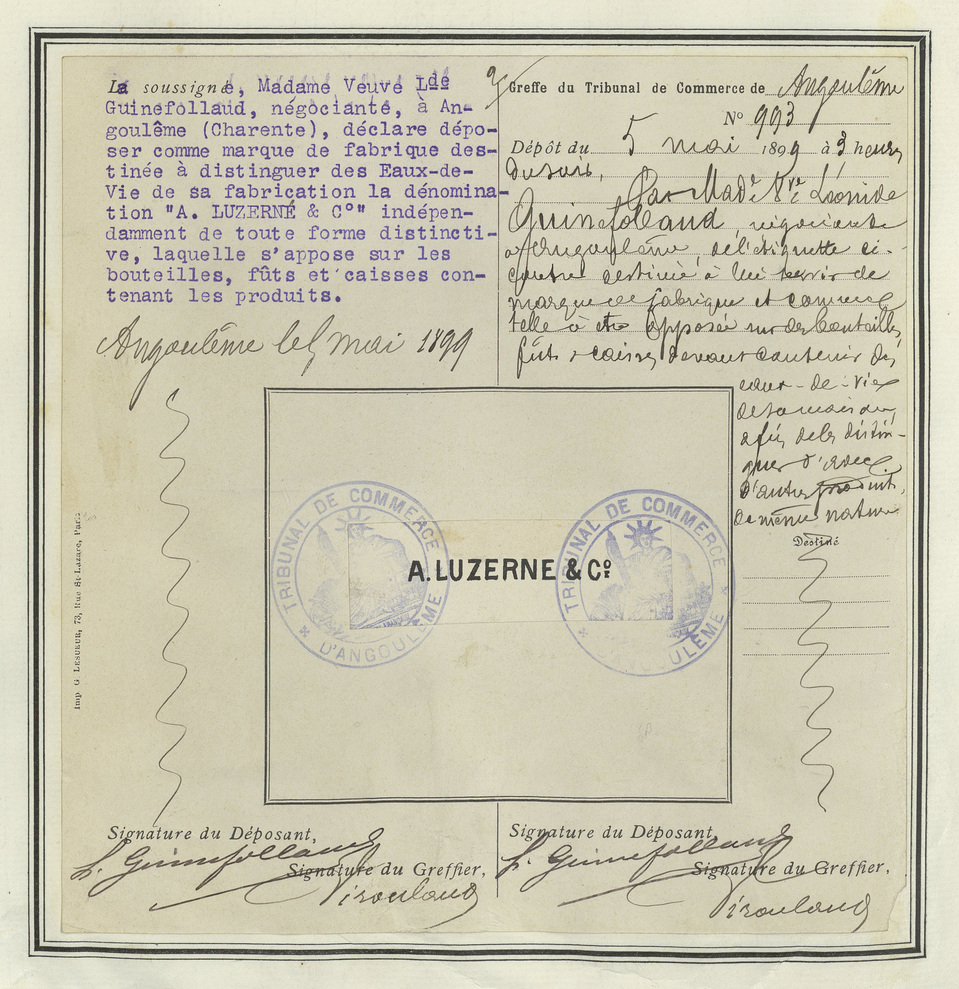 La soussigné, Madame Veuve Lde
Guinefollaud, négociante, à An-
goulême (Charente), déclare dépo-
ser comme marque de fabrique des-
tinée à distinguer des Eaux-de-
Vie de sa fabrication la dénomina-
tion "A. LUZERNE & C°" indépen-
damment de toute forme distincti-
ve, laquelle s'appose sur les
bouteilles, fûts et caisses con-
tenant les produits.
Angoulême le 5 mai 1899
Greffe du Tribunal de Commerce de Angoulême
N° 993
Dépôt du 5 mai 1899 à 3 heures
du soir,
Par Made Vve Léonide
Guinefollaud, négociante
à Angoulême, de l'étiquette ci-
contre destinée à lui servir de
marque de fabrique et commerce
telle à être apposée sur des bouteilles,
fûts & caisses devant contenir des
eaux-de-vie
de sa maison,
afin de les distin-
guer d'avec
d'autres produits
de même nature
Destiné
TRIBUNAL DE COMMERCE
D'ANGOULÊME
A. LUZERNE & Cº
TRIBUNAL DE COMMERCE
D'ANGOULÊME
Imp G LESUEUR, 73, Rue St-Lazare, Paris
Signature du Déposant,
L. Guinefollaud
Signature du Greffier,
Signature du Déposant,
L. Guinefollaud
Signature du Greffier,